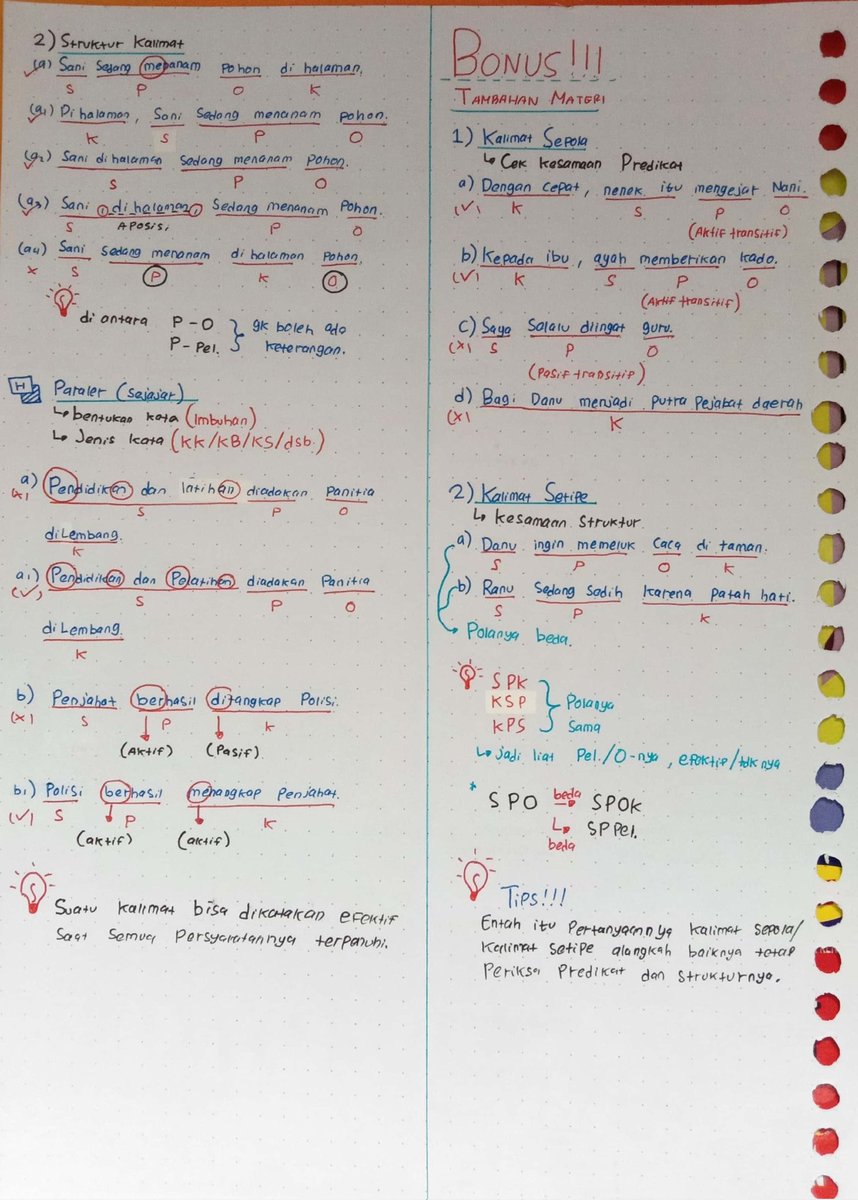 2) Struktur Kalimat
(a) Sani Sedang menanam Pohon di halaman.
S P O K
(a1) Di halaman, Sani Sedang menanam pohon.
K S P O
(a2) Sani di halaman Sedang menanam Pohon.
S P O
(a3) Sani , di halaman , Sedang menanam Pohon.
S APosisi, P O
(a4) Sani Sedang menanam di halaman Pohon.
x S P K O
di antara P - O
P - Pel. } gk boleh ada keterangan.
H Paraler (sejajar)
↳ bentukan kata (Imbuhan)
↳ Jenis kata (KK/KB/KS/dsb.)
a) Pendidikan dan latihan diadakan Panitia
(x) S P O
di Lembang.
K
a1) Pendidikan dan Pelatihan diadakan Panitia
(✓) S P O
di Lembang.
K
b) Penjahat berhasil ditangkap Polisi.
(x) S P K
(Aktif) (Pasif)
b1) Polisi berhasil menangkap Penjahat.
(✓) S P K
(aktif) (aktif)
Suatu kalimat bisa dikatakan efektif
Saat Semua Persyaratannya terpenuhi.
BONUS!!!
TAMBAHAN MATERI
1) Kalimat Sepola
↳ Cek kesamaan Predikat
a) Dengan cepat, nenek itu mengejar Nani.
(✓) K S P O
(Aktif transitif)
b) Kepada ibu, ayah memberikan kado.
(✓) K S P O
(Aktif transitif)
c) Saya Selalu diingat guru.
(x) S P O
(Pasif transitif)
d) Bagi Danu menjadi Putra Pejabat daerah
(x) K
2) Kalimat Setipe
↳ kesamaan Struktur
a) Danu ingin memeluk Caca di taman.
S P O K
b) Ranu Sedang Sedih karena Patah hati.
S P K
Polanya beda.
SPK
KSP } Polanya
KPS Sama
↳ jadi liat Pel./O-nya, efektif/tdknya
* SPO beda → SPOK
↳ SPPel.
beda
TIPS!!!
Entah itu Pertanyaannya kalimat sepola/
kalimat Setipe alangkah baiknya tetap
Periksa Predikat dan Strukturnya.